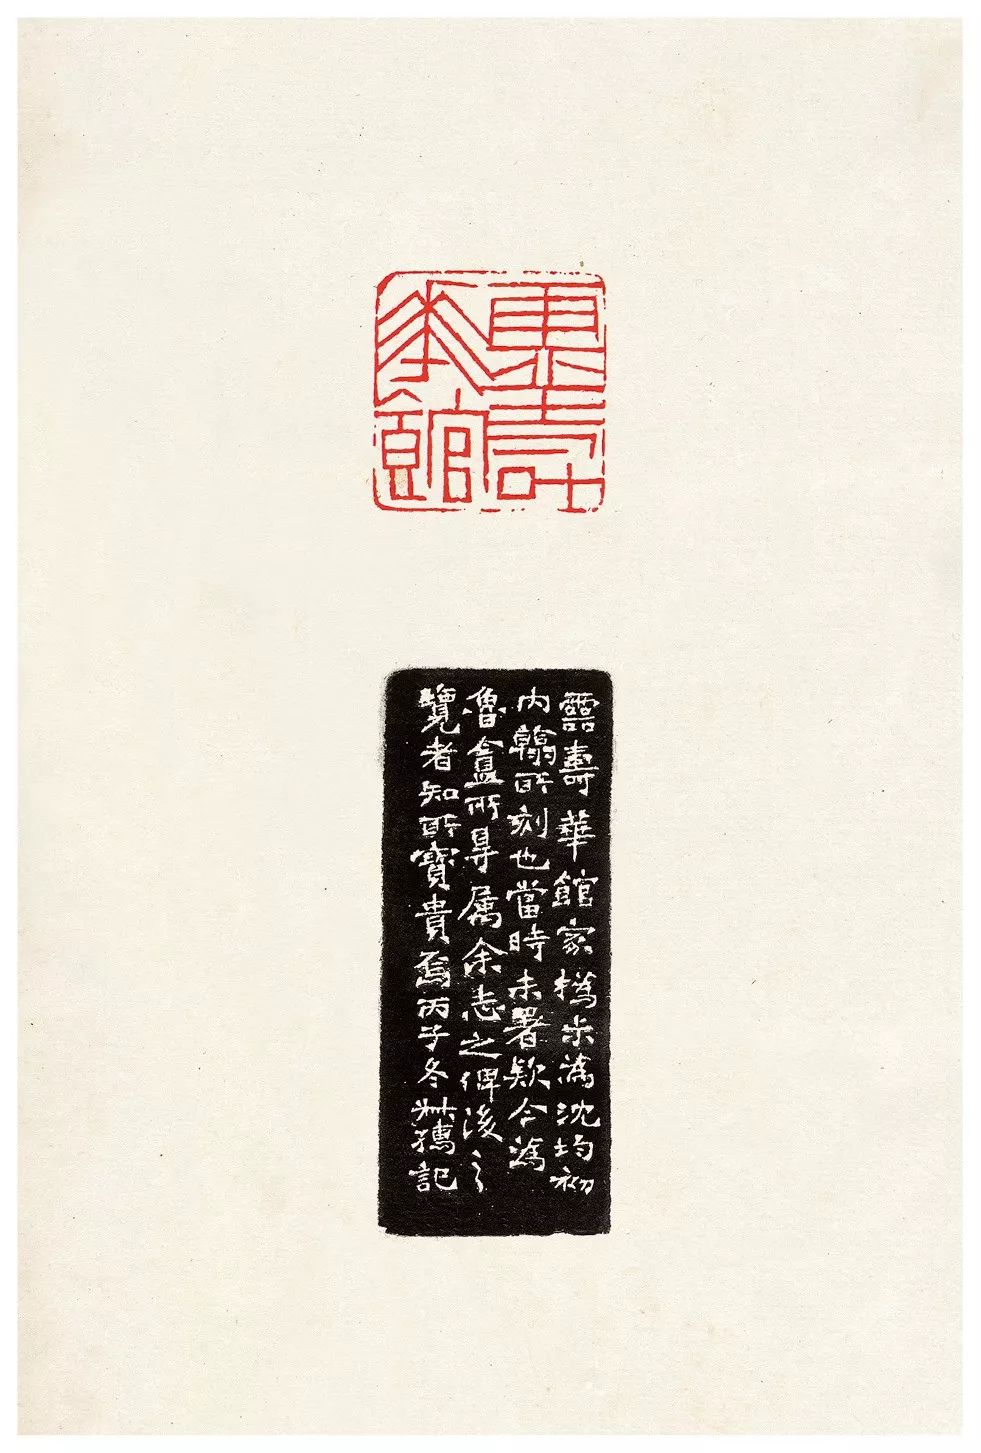 靈壽華館
靈壽華館家撝尗為沈均初
內翰所刻也當時未署欵今為
魯盦所㝵属余志之俾後之
覽者知所寶貴焉丙子冬尗孺記